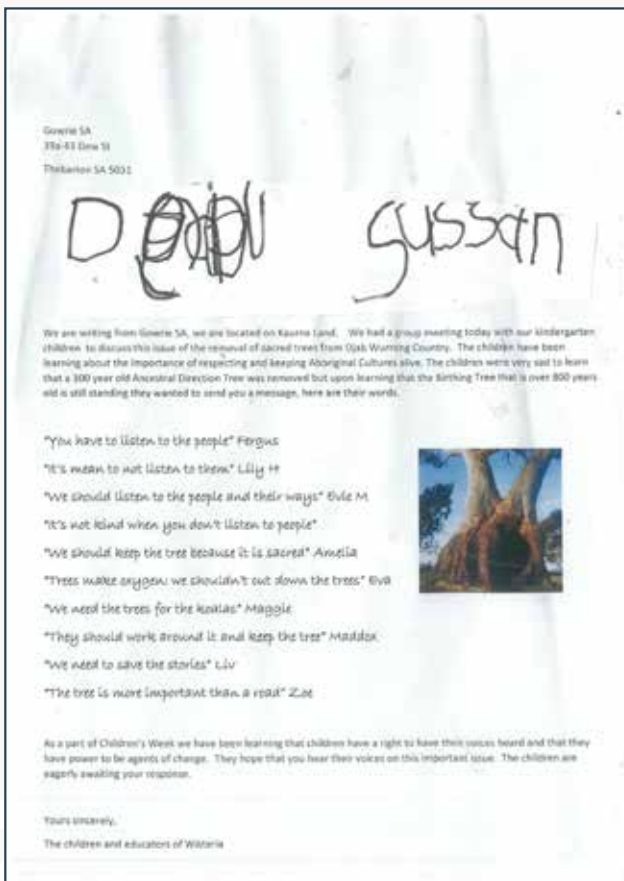 Gowrie SA
39a-43 Dew St
Thebarton SA 5031
D gussan
We are writing from Gowrie SA, we are located on Kaurna Land. We had a group meeting today with our kindergarten
children to discuss this issue of the removal of sacred trees from Djab Wurrung Country. The children have been
learning about the importance of respecting and keeping Aboriginal Cultures alive. The children were very sad to learn
that a 300 year old Ancestral Direction Tree was removed but upon learning that the Birthing Tree that is over 800 years
old is still standing they wanted to send you a message, here are their words.
"You have to listen to the people" Fergus
"It's mean to not listen to them" Lily H
"We should listen to the people and their ways" Evie M
"It's not kind when you don't listen to people"
"We should keep the tree because it is sacred" Amelia
"Trees make oxygen: we shouldn't cut down the trees" Eva
"We need the trees for the koalas" Maggie
"They should work around it and keep the tree" Maddox
"We need to save the stories" Liv
"The tree is more important than a road" Zoe
As a part of Children's Week we have been learning that children have a right to have their voices heard and that they
have power to be agents of change. They hope that you hear their voices on this important issue. The children are
eagerly awaiting your response.
Yours sincerely,
The children and educators of Wiltarra